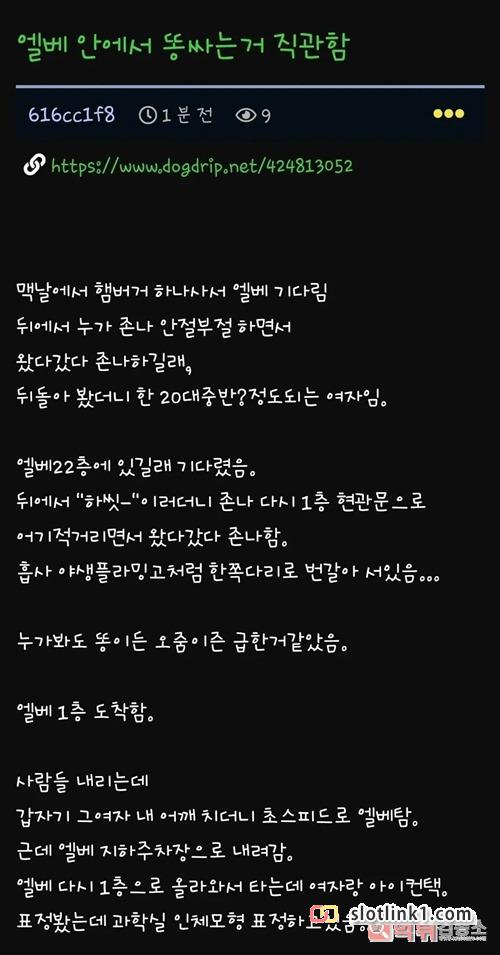 엘베 안에서 똥싸는거 직관함
616cc1f8 1분 전 9
https://www.dogdrip.net/424813052
맥날에서 햄버거 하나사서 엘베 기다림
뒤에서 누가 존나 안절부절 하면서
왔다갔다 존나하길래,
뒤돌아 봤더니 한 20대중반?정도되는 여자임.
엘베22층에 있길래 기다렸음.
뒤에서 "하씻-"이러더니 존나 다시 1층 현관문으로
어기적거리면서 왔다갔다 존나함.
흡사 야생플라밍고처럼 한쪽다리로 번갈아 서있음...
누가봐도 똥이든 오줌이즌 급한거같았음.
엘베 1층 도착함.
사람들 내리는데
갑자기 그여자 내 어깨 치더니 초스피드로 엘베탐.
근데 엘베 지하주차장으로 내려감.
엘베 다시 1층으로 올라와서 타는데 여자랑 아이컨택.
표정봤는데 과학실 인체모형 표정하고
slotlink1.com
먹튀검증소